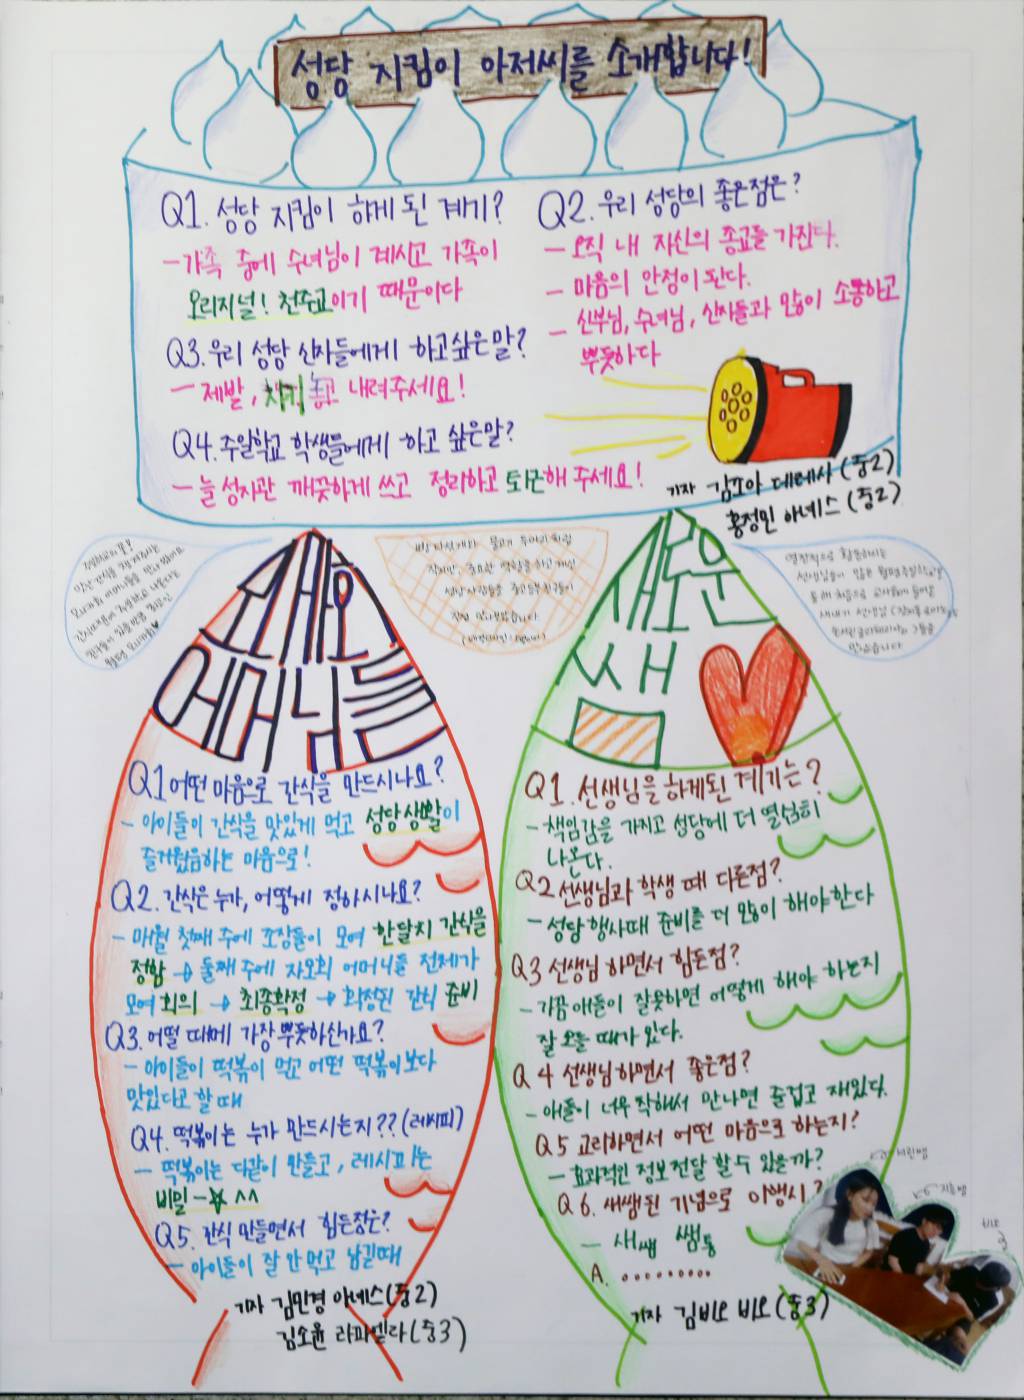 성당 지킴이 아저씨를 소개합니다!
Q1. 성당 지킴이 하게 된 계기?
-가족 중에 수녀님이 계시고 가족이
오리지널! 천주교이기 때문이다
Q2. 우리 성당의 좋은점은?
- 오직 내 자신의 종교를 가진다.
- 마음의 안정이 된다.
- 신부님, 수녀님, 신자들과 많이 소통하고
뿌듯하다
Q3. 우리 성당 신자들에게 하고싶은말?
- 제발, 차키 놓고 내려주세요!
Q4. 주일학교 학생들에게 하고 싶은말?
- 늘 성지관 깨끗하게 쓰고 정리하고 퇴근해 주세요!
기자 김조아 데레사 (중2)
홍정민 아녜스 (중2)
자모회
어머니들
Q1 어떤 마음으로 간식을 만드시나요?
- 아이들이 간식을 맛있게 먹고 성당생활이
즐거웠음하는 마음으로!
Q2. 간식은 누가, 어떻게 정하시나요?
- 매월 첫째 주에 조장들이 모여 한달치 간식을
정함 → 둘째 주에 자모회 어머니들 전체가
모여 회의 → 최종확정 → 확정된 간식 준비
Q3. 어떨 때에 가장 뿌듯하신가요?
- 아이들이 떡볶이 먹고 어떤 떡볶이보다
맛있다고 할 때
Q4. 떡볶이는 누가 만드시는지?? (레시피)
- 떡볶이는 다같이 만들고, 레시피는
비밀-☆ ^^
Q5. 간식 만들면서 힘든점은?
- 아이들이 잘 안 먹고 남길때
기자 김민경 아녜스 (중2)
김소윤 라파엘라 (중3)
새로운
쌤
Q1. 선생님을 하게된 계기는?
- 책임감을 가지고 성당에 더 열심히
나온다.
Q2 선생님과 학생 때 다른점?
- 성당 행사때 준비를 더 많이 해야한다
Q3 선생님 하면서 힘든점?
- 가끔 애들이 잘못하면 어떻게 해야 하는지
잘 모를 때가 있다.
Q4 선생님하면서 좋은점?
- 애들이 너무 착해서 만나면 즐겁고 재밌다.
Q5 교리하면서 어떤 마음으로 하는지?
- 효과적인 정보 전달 할 수 있을까?
Q6. 새쌤된 기념으로 이행시?
- 새쌤 쌤통
A. .........
기자 김비오 비오 (중3)